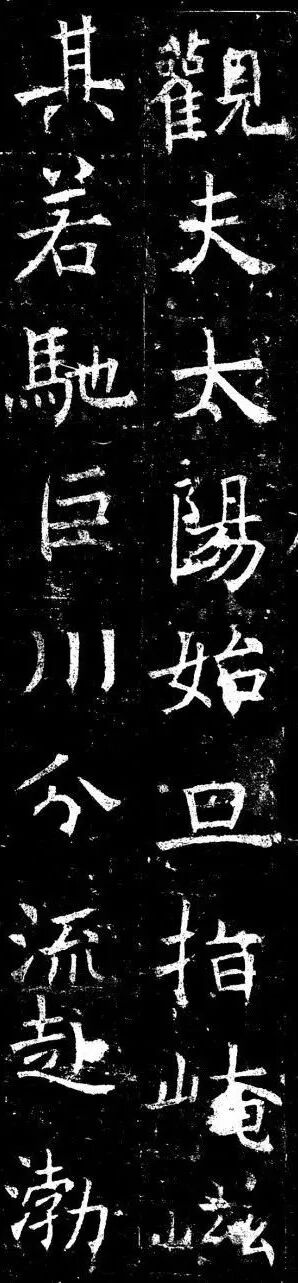 觀夫太陽始旦指崦嵫
其若馳巨川分流赴渤